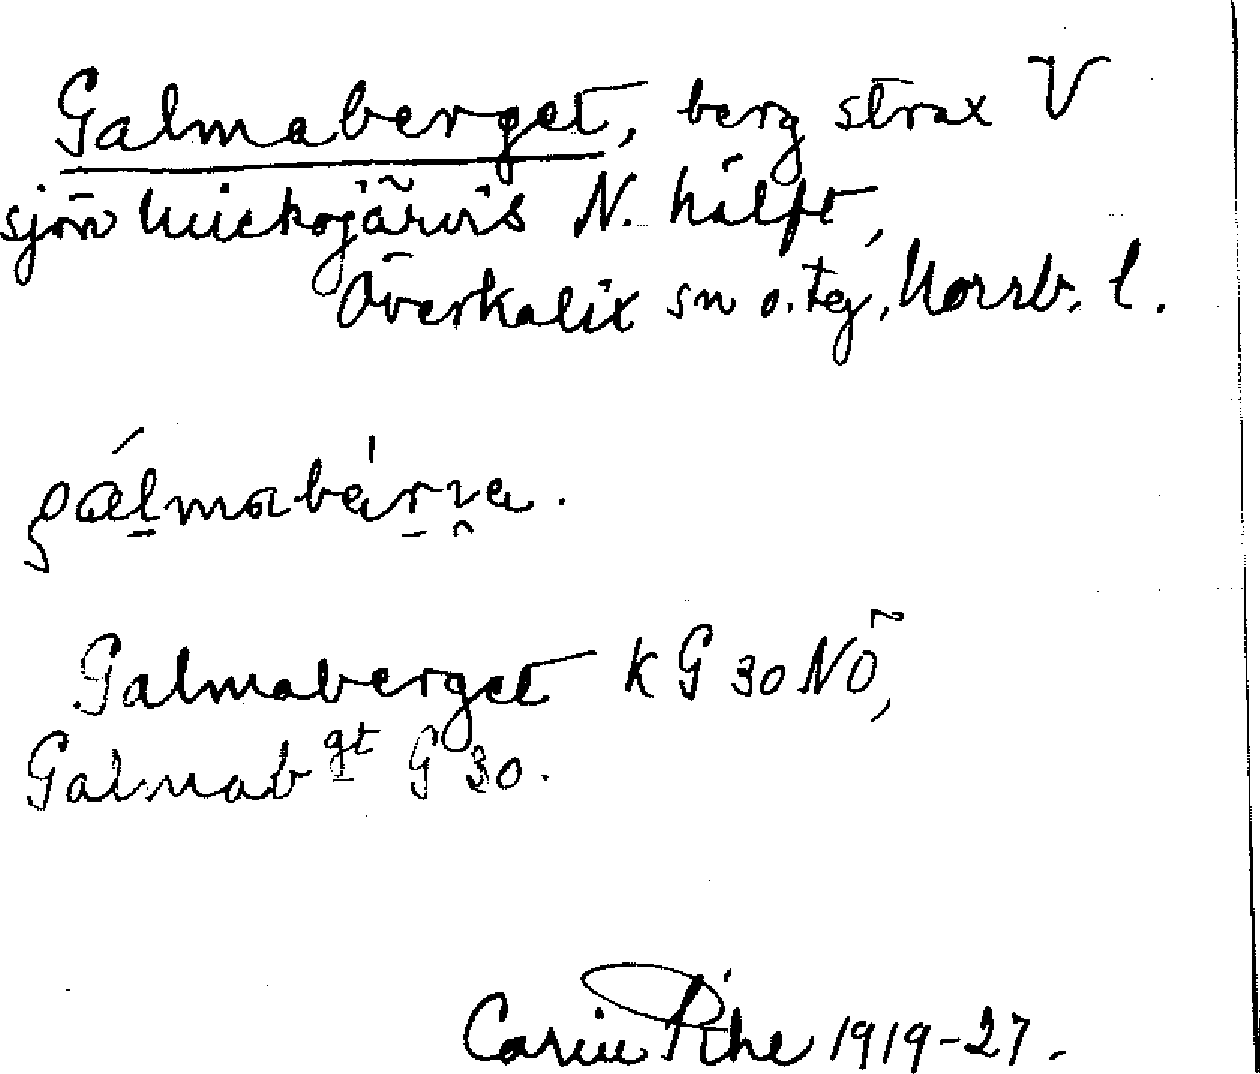 Galmaberget, berg strax V
sjön Mickojärvis N. hälft,
Överkalix sn o. tg, Norrb. l.
Galmaberget K G 30 NÖ,
Galmabgt G 30.
Carin Pihl 1919-27.